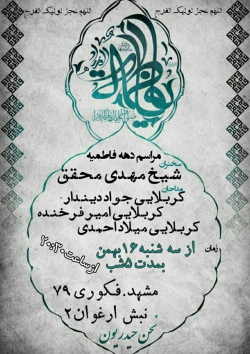 اللهم عجل لولیک الفرج
اللهم عجل لولیک الفرج
یا فاطمة
مراسم دهه فاطمیه
سخنران
شیخ مهدی محقق
مداحان
کربلایی جواد دیندار
کربلایی امیر فرخنده
کربلایی میلاد احمدی
زمان
از سه شنبه ۱۶ بهمن
بمدت ۵ شب
از ساعت ۲۰:۲۰
مشهد. فکوری ۷۹
نبش ارغوان ۲
نحن حیدریون